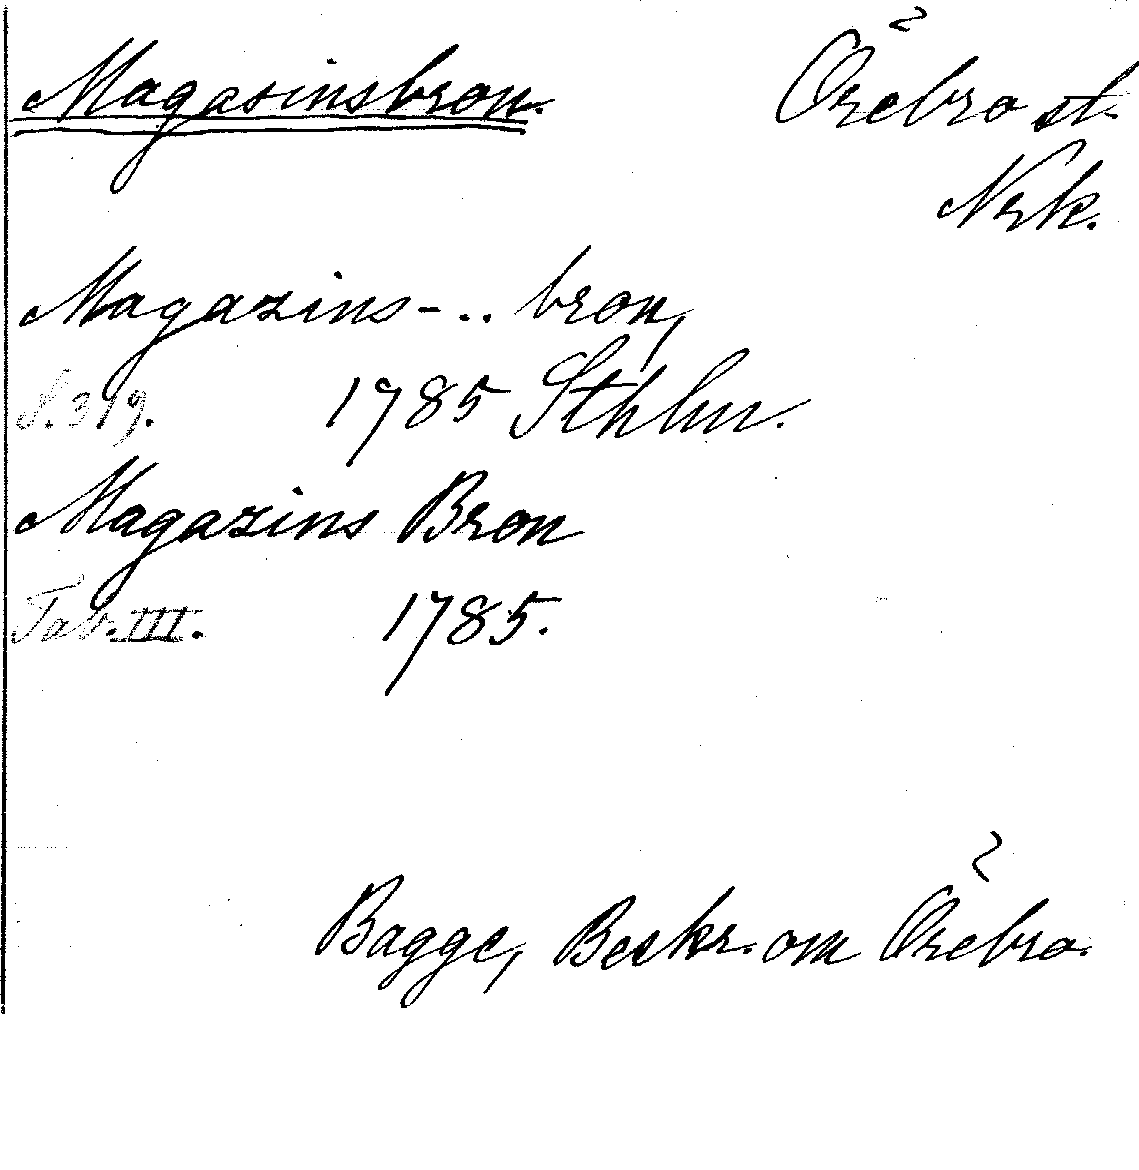 Magasinsbron. Örebro st.
Nrk.
Magazins-.. bron,
S. 319. 1785 Sthlm.
Magazins Bron
Tab. III. 1785.
Bagge, Beskr. om Örebro.